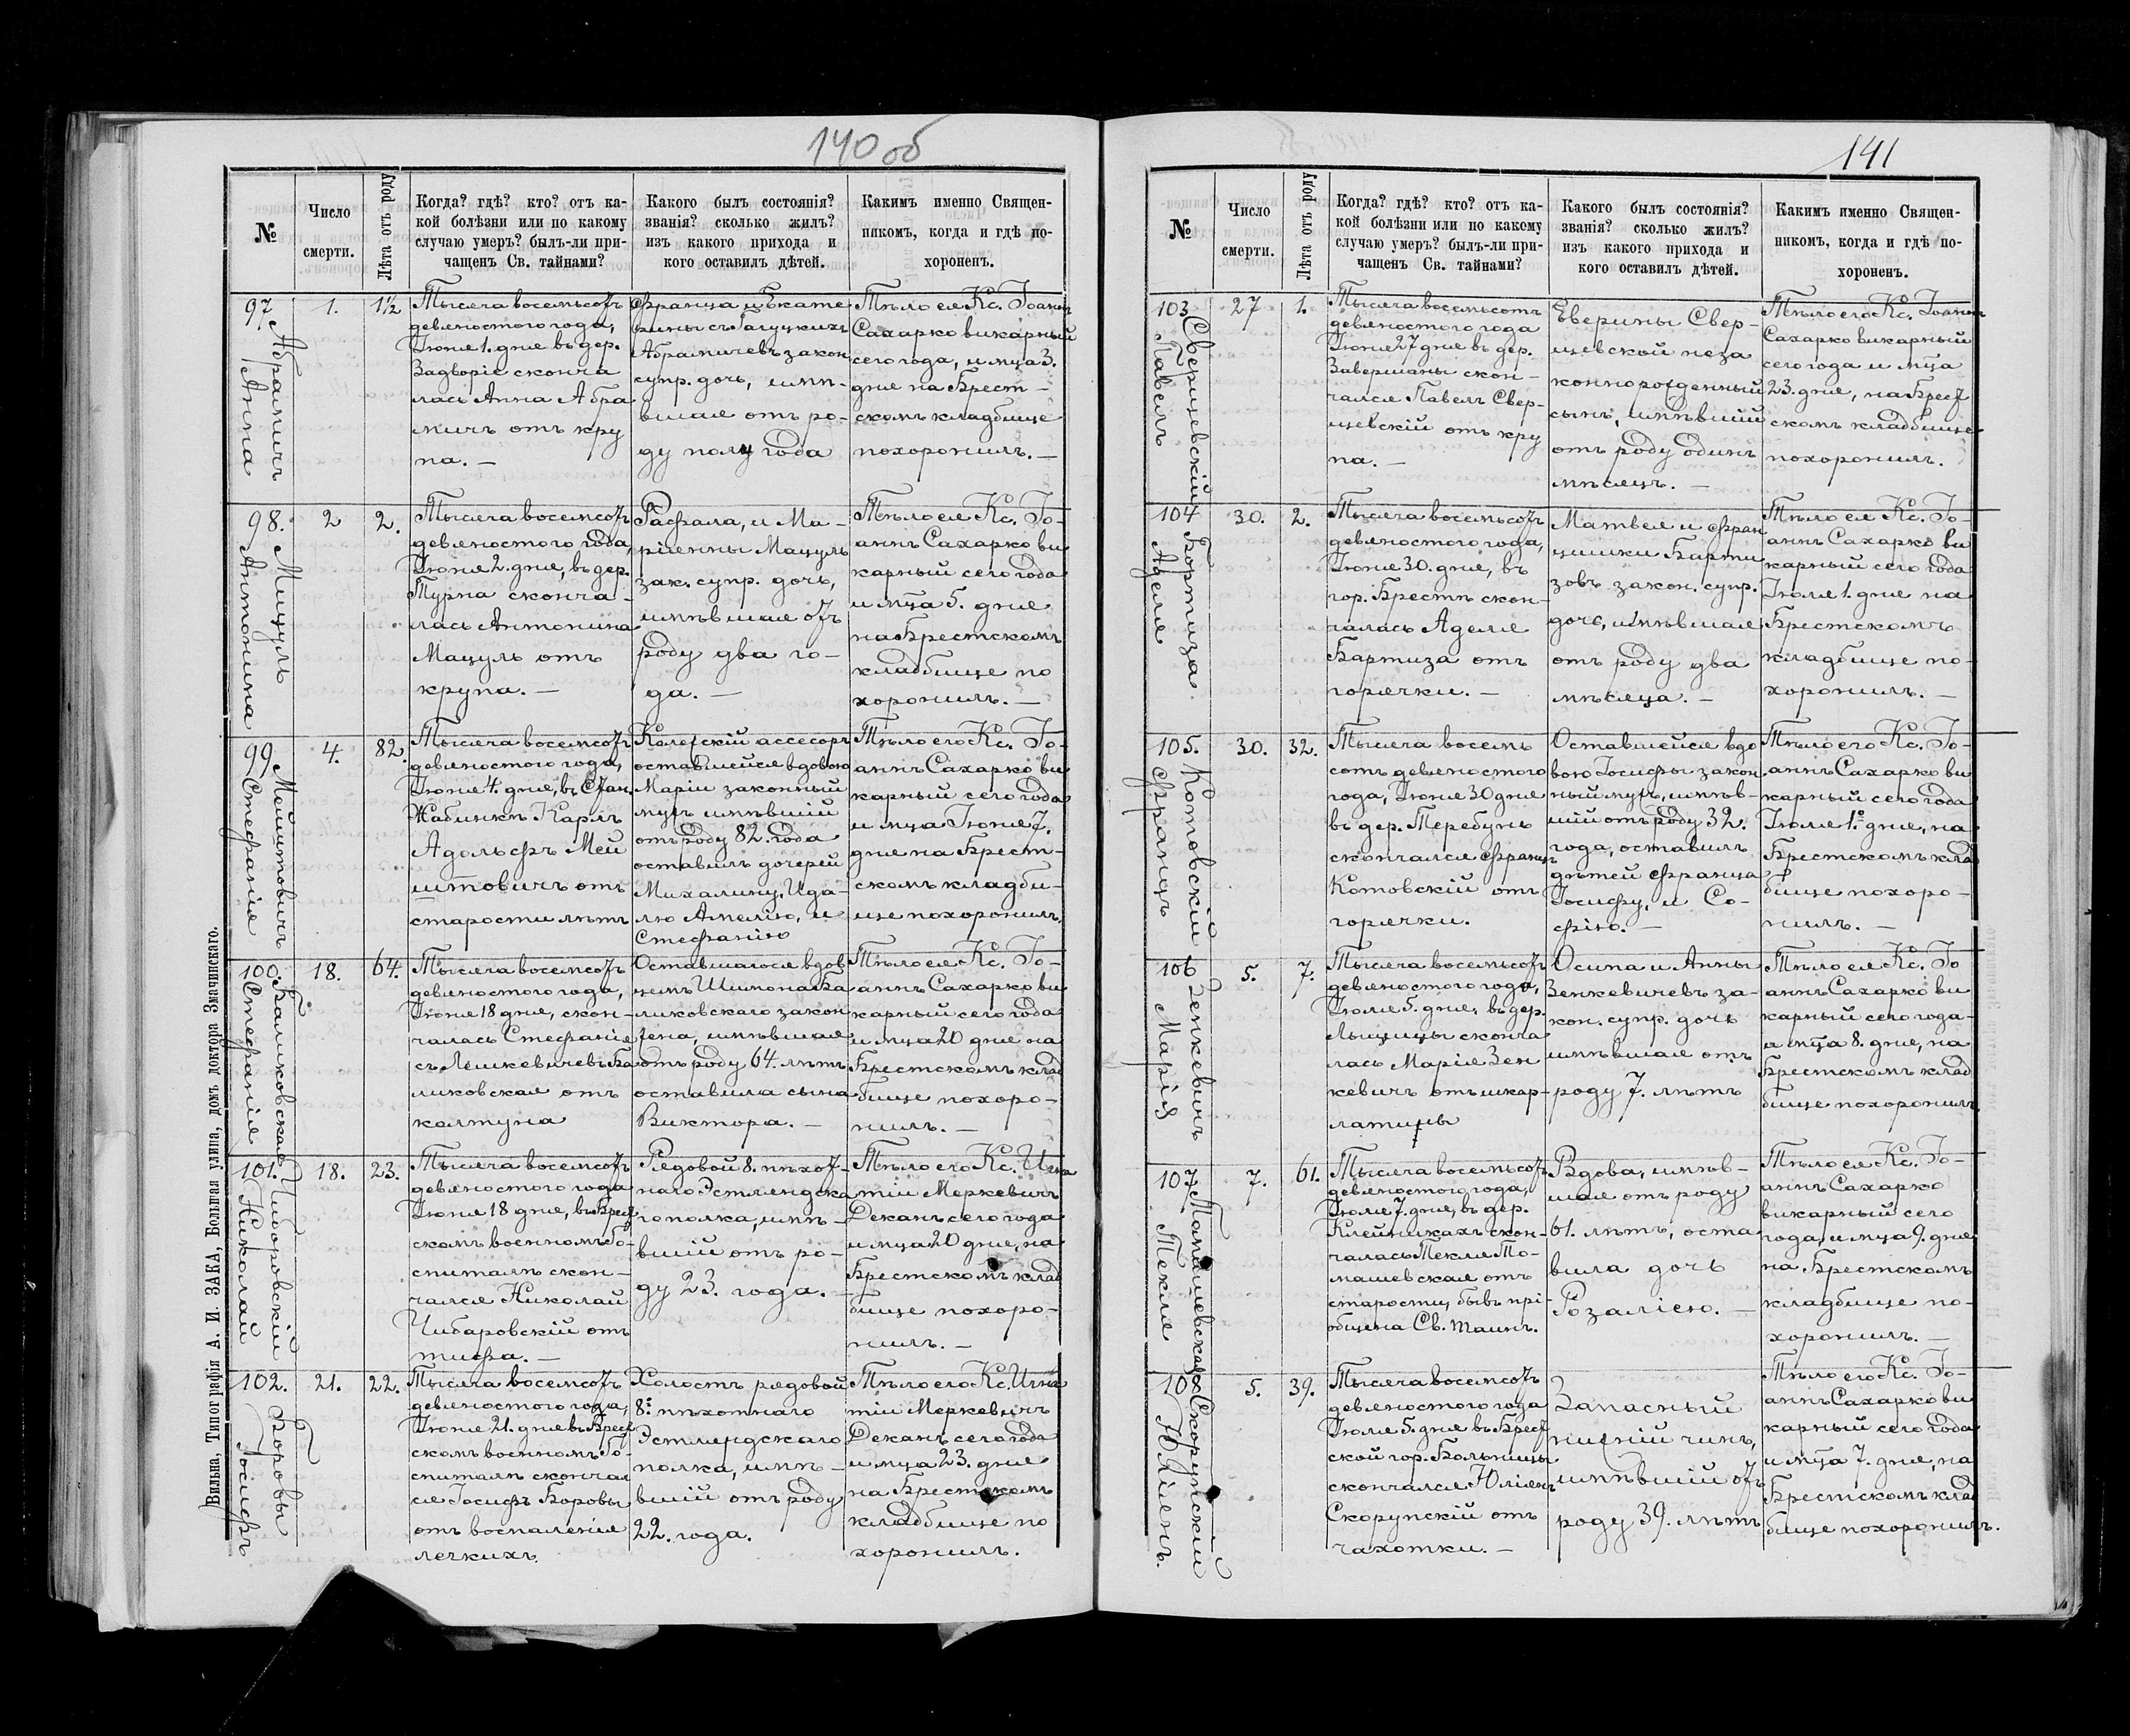 140 об
№
Число
смерти.
Лѣта отъ роду
Когда? гдѣ? кто? отъ ка-
кой болѣзни или по какому
случаю умеръ? былъ-ли при-
чащенъ Св. тайнами?
Какого былъ состоянія?
званія? сколько жилъ?
изъ какого прихода и
кого оставилъ дѣтей.
Какимъ именно Священ-
никомъ, когда и гдѣ по-
хороненъ.
97.
Абрамичъ
Анна
1.
1½
Тысяча восемьсотъ
девяностого года,
Іюня 1. дня въ дер.
Задворіе сконча
лась Анна Абра
мичъ отъ кру
па. —
Франца и Екате
рины съ
Абрамичевъ закон.
супр. дочь, имѣ-
вшая отъ ро-
ду полу года
Тѣло ея Кс. Іоаннъ
Сахарко викарный
сего года, и мца 3.
дня на Брест-
скомъ кладбище
похоронилъ. —
98.
Мацуль
Антонина
2
2.
Тысяча восемсотъ
девяностого года,
Іюня 2. дня, въ дер.
Турна сконча-
лась Антонина
Мацуль отъ
крупа. —
Рафала, и Ма-
ріянны Мацуль
зак. супр. дочь,
имѣвшая отъ
роду два го-
да. —
Тѣло ея Кс. Іо-
аннъ Сахарко ви
карный сего года
и мца 5. дня
на Брестскомъ
кладбище по
хоронилъ. —
99.
Мейштовичъ
Стефанія
4.
82.
Тысяча восемсотъ
девяностого года,
Іюня 4. дня, въ Стан.
Жабинкѣ Карлъ
Адольфъ Мей
штовичъ отъ
старости лѣтъ
Колежскій ассесоръ
оставшейся вдовою
Маріи законный
мужъ имѣвшій
отъ роду 82. года
оставилъ дочерей
Михалину, Ида-
лю Амелію, и
Стефанію
Тѣло его Кс. Іо-
аннъ Сахарко ви
карный сего года
и мца Іюня 7.
дня на Брест-
скомъ кладби-
ще похоронилъ.
100.
Баликовская
Стефанія
18.
64.
Тысяча восемсотъ
девяностого года,
Іюня 18 дня, скон-
чалась Стефанія
съ Ба
ликовская отъ
колтуна
Оставшагося вдов
цемъ Шимона Ба
ликовскаго закон
жена, имѣвшая
отъ роду 64. лѣтъ
оставила сына
Виктора. —
Тѣло ея Кс. Іо-
аннъ Сахарко ви
карный сего года
и мца 20 дня на
Брестскомъ клад
бище похоро-
нилъ. —
101.
Чибаровскій
Николай
18.
23.
Тысяча восемсотъ
девяностого года
Іюня 18 дня, въ Брест
скомъ военномъ Го-
спиталѣ скон-
чался Николай
Чибаровскій отъ
тифа. —
Рядовой 8. пѣхот-
наго Эстляндска
го полка, имѣ-
вшій отъ ро-
ду 23. года. —
Тѣло его Кс. Игна
тій Меркевичъ
Деканъ сего года
и мца 20 дня, на
Брестскомъ клад
бище похоро-
нилъ. —
102.
Боровы
Іосифъ
21.
22.
Тысяча восемсотъ
девяностого года,
Іюня 21. дня въ Брест
скомъ военномъ Го-
спиталѣ скончал
ся Іосифъ Боровы
отъ воспаленія
легкихъ.
Холостъ рядовой
8. пѣхотнаго
Эстляндскаго
полка, имѣ-
вшій отъ роду
22. года.
Тѣло его Кс. Игна
тій Меркевичъ
Деканъ сего года
и мца 23. дня
на Брестскомъ
кладбище по
хоронилъ.
Вильна, Типографія А. И. ЗАКА, Большая улица, домъ доктора Змачинскаго.
141
№
Число
смерти.
Лѣта отъ роду
Когда? гдѣ? кто? отъ ка-
кой болѣзни или по какому
случаю умеръ? былъ-ли при-
чащенъ Св. тайнами?
Какого былъ состоянія?
званія? сколько жилъ?
изъ какого прихода и
кого оставилъ дѣтей.
Какимъ именно Священ-
никомъ, когда и гдѣ по-
хороненъ.
103
Сверщевскій
Павелъ
27
1.
Тысяча восемьсотъ
девяностого года
Іюня 27 дня въ дер.
Завершаны скон-
чался Павелъ Свер-
щевскій отъ кру
па. —
Еверины Свер-
щевской неза
коннорожденный
сынъ, имѣвшій
отъ роду одинъ
мѣсяцъ. —
Тѣло его Кс. Іоаннъ
Сахарко викарный
сего года и мца
23. дня, на Брест
скомъ кладбище
похоронилъ.
104
Бортиза
Аделя
30.
2.
Тысяча восемьсотъ
девяностого года,
Іюня 30. дня, въ
гор. Брестѣ скон-
чалась Аделя
Бартиза отъ
горячки. —
Матвея и Фран
цишки Барти
зовъ закон. супр.
дочь, имѣвшая
отъ роду два
мѣсяца. —
Тѣло ея Кс. Іо-
аннъ Сахарко ви
карный сего года
Іюля 1. дня на
Брестскомъ
кладбище по-
хоронилъ. —
105.
Котовскій
Францъ
30.
32.
Тысяча восемь
сотъ девяностого
года, Іюня 30 дня
въ дер. Теребунь
скончался Францъ
Котовскій отъ
горячки.
Оставшейся вдо
вою Іосифы закон
ный мужъ, имѣв-
шій отъ роду 32.
года, оставилъ
дѣтей Франца
Іосифу, и Со-
фію. —
Тѣло его Кс. Іо-
аннъ Сахарко ви
карный сего года
Іюля 1. дня, на
Брестскомъ клад
бище похоро-
нилъ. —
106
Зенкевичъ
Марія
5.
7.
Тысяча восемьсотъ
девяностого года,
Іюля 5. дня, въ дер.
Лыщицы сконча
лась Марія Зен
кевичъ отъ шкар-
латины
Осипа и Анны
Зенкевичевъ за-
кон. супр. дочь
имѣвшая отъ
роду 7. лѣтъ
Тѣло ея Кс. Іо
аннъ Сахарко ви
карный сего года
и мца 8. дня, на
Брестскомъ клад
бище похоронилъ
107
Томашевская
Текля
7.
61.
Тысяча восемьсотъ
девяностого года,
Іюля 7. дня, въ дер.
Клейникахъ скон-
чалась Текля То-
машевская отъ
старости, бывъ прі-
общена Св. таинъ.
Вдова, имѣв-
шая отъ роду
61. лѣтъ, оста
вила дочь
Розалію. —
Тѣло ея Кс. Іо-
аннъ Сахарко
викарный сего
года, и мца 9. дня
на Брестскомъ
кладбище по-
хоронилъ. —
108
Скорупскій
Юліянъ.
5.
39.
Тысяча восемсотъ
девяностого года
Іюля 5. дня въ Брест
ской гор. Больницы
скончался Юліянъ
Скорупскій отъ
чахотки. —
Запасный
нижній чинъ,
имѣвшій отъ
роду 39. лѣтъ
Тѣло его Кс. Іо-
аннъ Сахарко ви
карный сего года
и мца 7. дня, на
Брестскомъ клад
бище похоронилъ.